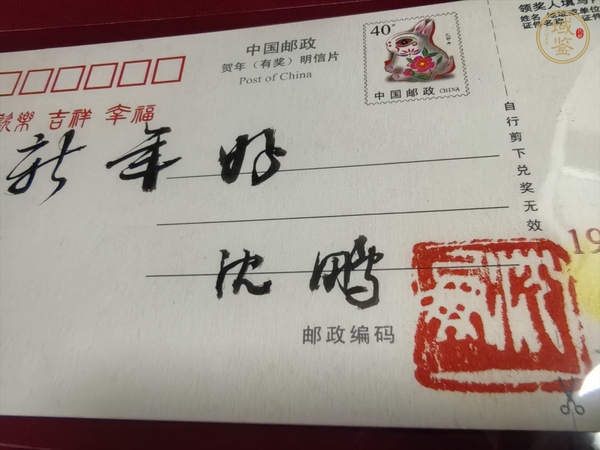 中国邮政
贺年（有奖）明信片
Post of China
40
己卯年
中国邮政 CHINA
领奖人填写
姓名
证件名称
域鉴
欢樂 吉祥 幸福
新年好
自行剪下兑奖无效
沈鹏
19
邮政编码